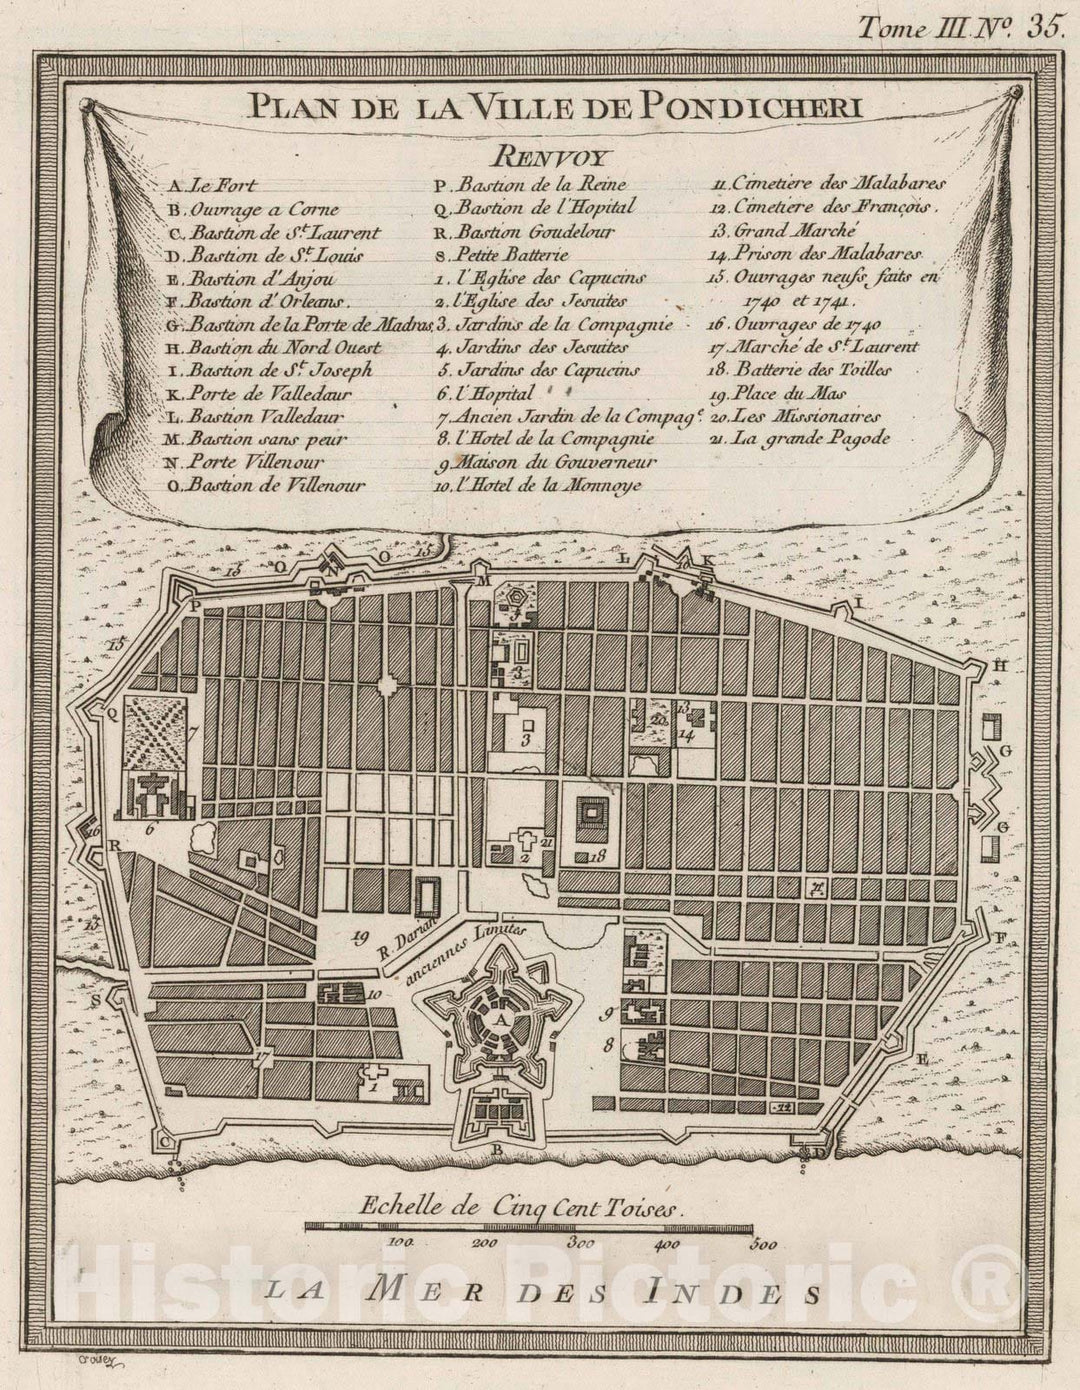 Tome III. Nº. 35.
PLAN DE LA VILLE DE PONDICHERI
RENVOY
A. Le Fort
B. Ouvrage a Corne
C. Bastion de St. Laurent
D. Bastion de St. Louis
E. Bastion d'Anjou
F. Bastion d'Orleans.
G. Bastion de la Porte de Madras
H. Bastion du Nord Ouest
I. Bastion de St. Joseph
K. Porte de Valledaur
L. Bastion Valledaur
M. Bastion sans peur
N. Porte Villenour
O. Bastion de Villenour
P. Bastion de la Reine
Q. Bastion de l'Hopital
R. Bastion Goudelour
S. Petite Batterie
1. l'Eglise des Capucins
2. l'Eglise des Jesuites
3. Jardins de la Compagnie
4. Jardins des Jesuites
5. Jardins des Capucins
6. l'Hopital
7. Ancien Jardin de la Compag.e
8. l'Hotel de la Compagnie
9. Maison du Gouverneur
10. l'Hotel de la Monnoye
11. Cimetiere des Malabares
12. Cimetiere des François.
13. Grand Marché
14. Prison des Malabares
15. Ouvrages neufs faits en
1740 et 1741.
16. Ouvrages de 1740
17. Marché de St. Laurent
18. Batterie des Toilles
19. Place du Mas
20. Les Missionaires
21. La grande Pagode
15
O
N
O
15
M
L
K
I
P
15
H
Q
7
3
3
20
13
14
G
6
16
R
2
21
18
G
15
19
R. Darian
anciennes Limites
F
S
10
A
9
8
E
17
1
12
C
B
D
Echelle de Cinq Cent Toises.
100
200
300
400
500
LA MER DES INDES
Historic Pictoric ®
Croisey